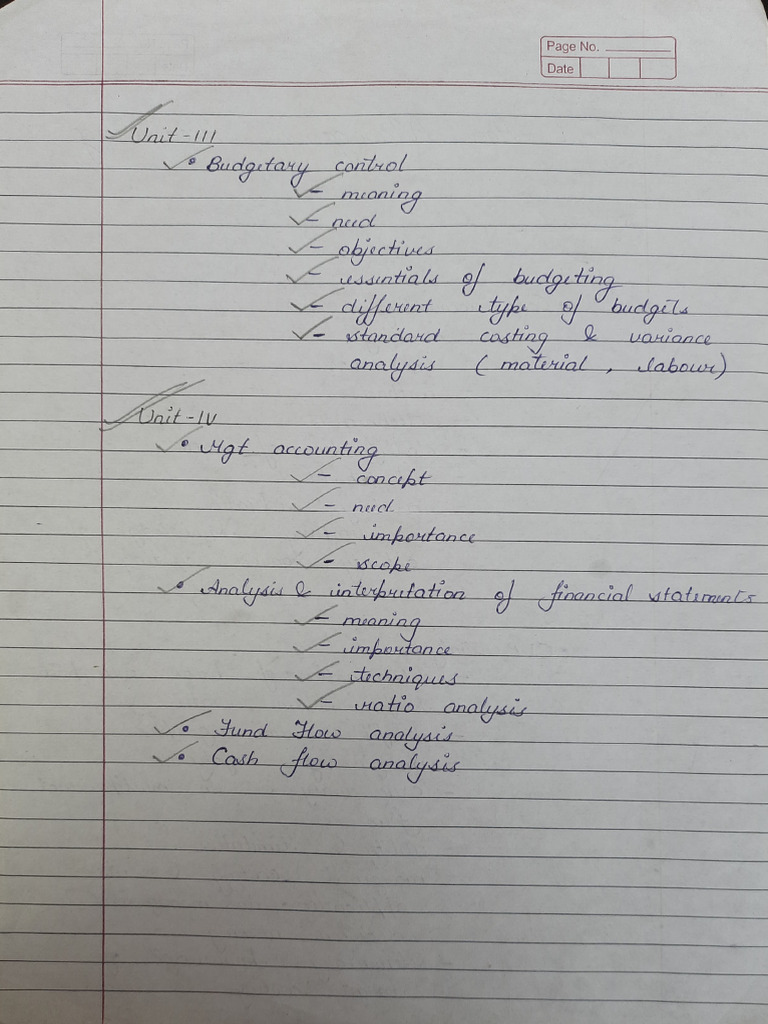 Page No.
Date
Unit-III
• Budgetary control
- meaning
- need
- objectives
- essentials of budgeting
- different type of budgets
- standard costing & variance
analysis (material, labour)
Unit-IV
• Mgt accounting
- concept
- need
- importance
- scope
• Analysis & interpretation of financial statements
- meaning
- importance
- techniques
- ratio analysis
• Fund Flow analysis
• Cash flow analysis